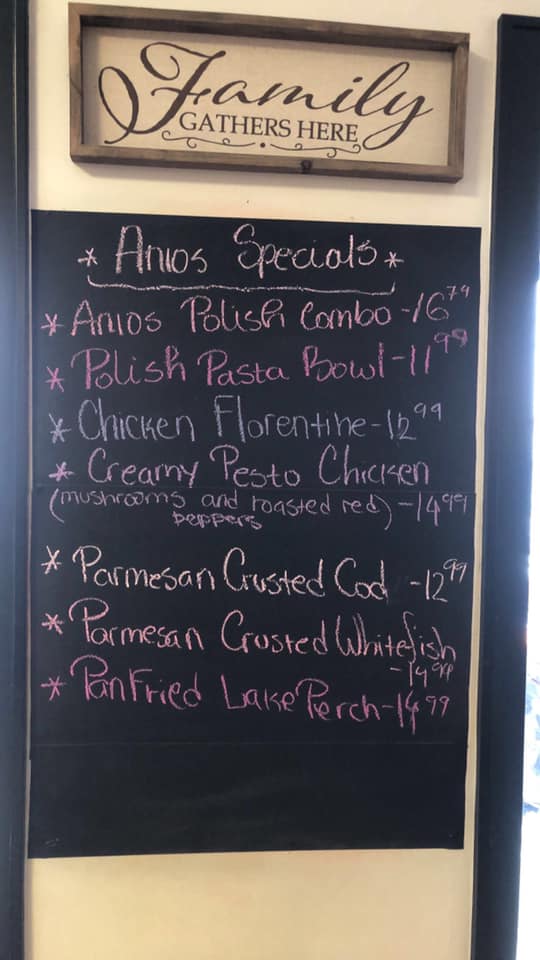 Family
GATHERS HERE
* Anios Specials *
* Anios Polish Combo -16 79
* Polish Pasta Bowl -11 99
* Chicken Florentine -12 99
* Creamy Pesto Chicken
(mushrooms and roasted red) -14 99
peppers
* Parmesan Crusted Cod -12 99
* Parmesan Crusted Whitefish
-14 99
* Pan Fried Lake Perch -14 99